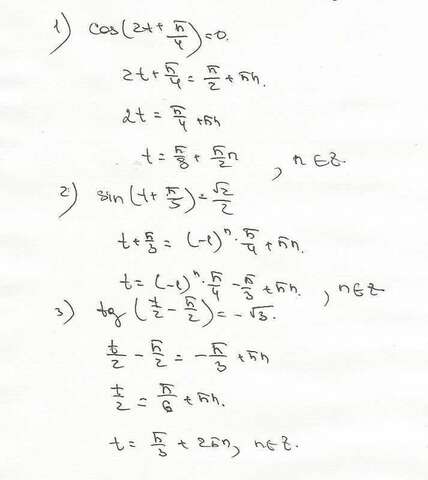 1) cos(2t + π/4) = 0.
2t + π/4 = π/2 + πn.
2t = π/4 + πn
t = π/8 + π/2 n, n ∈ Z.
2) sin(t + π/3) = √2/2
t + π/3 = (-1)^n · π/4 + πn.
t = (-1)^n · π/4 - π/3 + πn., n ∈ Z
3) tg(t/2 - π/2) = -√3.
t/2 - π/2 = -π/3 + πn
t/2 = π/6 + πn.
t = π/3 + 2πn, n ∈ Z.